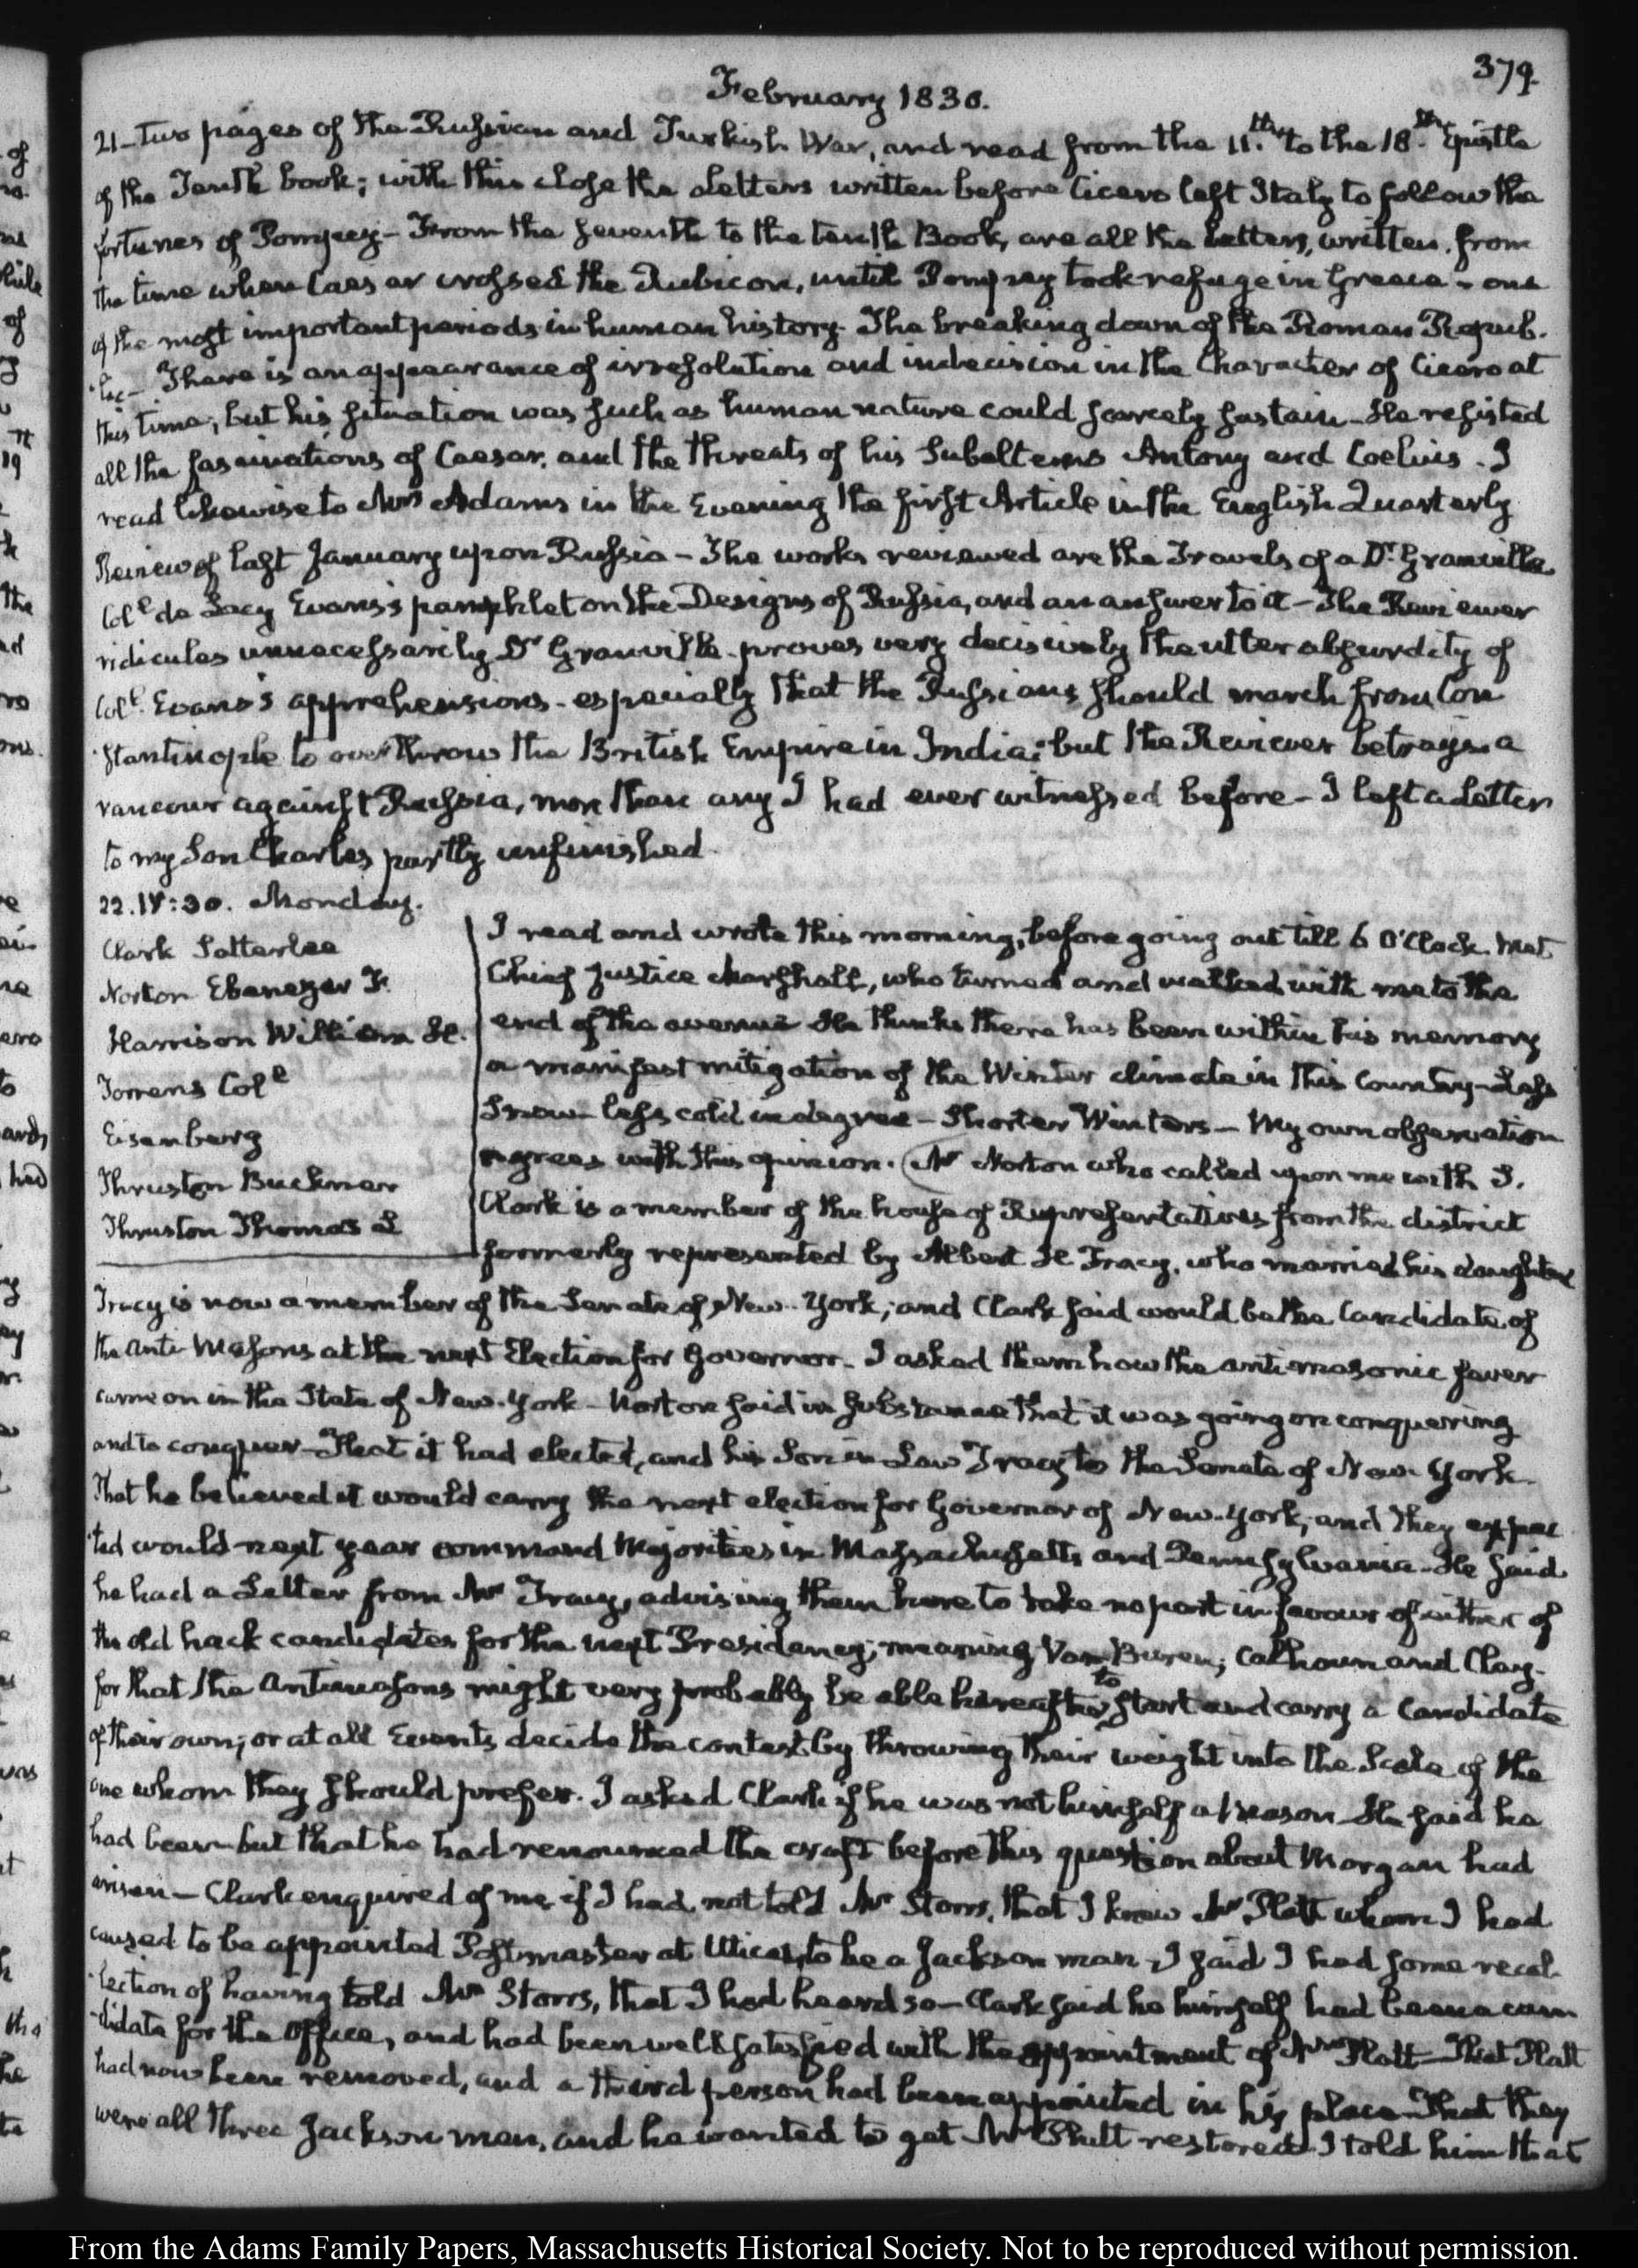 379.
February 1830.
21 - two pages of the Russian and Turkish War, and read from the 11.th to the 18.th Epistle
of the Tenth book; with this close the Letters written before Cicero left Italy to follow the
fortunes of Pompey - From the seventh to the tenth Book, are all the Letters, written, from
the time when Caesar crossed the Rubicon, until Pompey took refuge in Greece - one
of the most important periods in human history. The breaking down of the Roman Repub-
-lic - There is an appearance of irresolution and indecision in the Character of Cicero at
this time; but his situation was such as human nature could scarcely sustain - He resisted
all the fascinations of Caesar, and the threats of his Subalterns Antony and Coelius. I
read likewise to Mrs Adams in the Evening the first Article in the English Quarterly
Review of last January upon Russia - The works reviewed are the Travels of a Dr. Granville
Coll de Lacy Evans's pamphlet on the Designs of Russia, and an answer to it - The Reviewer
ridicules unnecessarily Dr Granville - proves very decisively the utter absurdity of
Coll. Evans's apprehensions - especially that the Russians should march from Con
-stantinople to overthrow the British Empire in India; but the Reviewer betrays a
rancour against Russia, more than any I had ever witnessed before - I left a Letter
to my Son Charles partly unfinished.
22. IV:30. Monday.
Clark Satterlee
Norton Ebenezer F.
Harrison William H.
Torrens Coll
Eisenberg
Thruston Buckner
Thruston Thomas L
I read and wrote this morning, before going out till 6 O'Clock. Met
Chief Justice Marshall, who turned and walked with me to the
end of the avenue He thinks there has been within his memory
a manifest mitigation of the Winter climate in this Country - Less
Snow - less cold in degree - Shorter Winters - My own observation
agrees with this opinion. (Mr Norton who called upon me with S.
Clark is a member of the house of Representatives from the district
formerly represented by Albert H Tracy, who married his daughter
Tracy is now a member of the Senate of New-York; and Clark said would be the Candidate of
the Anti-Masons at the next Election for Governor. I asked them how the antimasonic fever
came on in the State of New-York - Norton said in substance that it was going on conquering
and to conquer - That it had elected, and his Son in Law Tracy to the Senate of New-York.
That he believed it would carry the next election for Governor of New-York; and they expec
-ted would next year command Majorities in Massachusetts and Pennsylvania - He said
he had a Letter from Mr Tracy, advising them here to take no part in favour of either of
the old hack candidates for the next Presidency; meaning Van Buren, Calhoun and Clay -
for that the Antimasons might very probably be able hereafter to start and carry a Candidate
of their own; or at all Events decide the contest by throwing their weight into the Scale of the
one whom they should prefer. I asked Clark if he was not himself a Mason - He said he
had been but that he had renounced the craft before this question about Morgan had
arisen - Clark enquired of me if I had not told Mr Storrs, that I knew Mr Platt whom I had
caused to be appointed Postmaster at Utica, to be a Jackson man - I said I had some recol-
-lection of having told Mr Storrs, that I had heard so - Clark said he himself had been a can
-didate for the Office, and had been well satisfied with the appointment of Mr Platt - That Platt
had now been removed, and a third person had been appointed in his place - That they
were all three Jackson men, and he wanted to get Mr Platt restored - I told him that
From the Adams Family Papers, Massachusetts Historical Society. Not to be reproduced without permission.